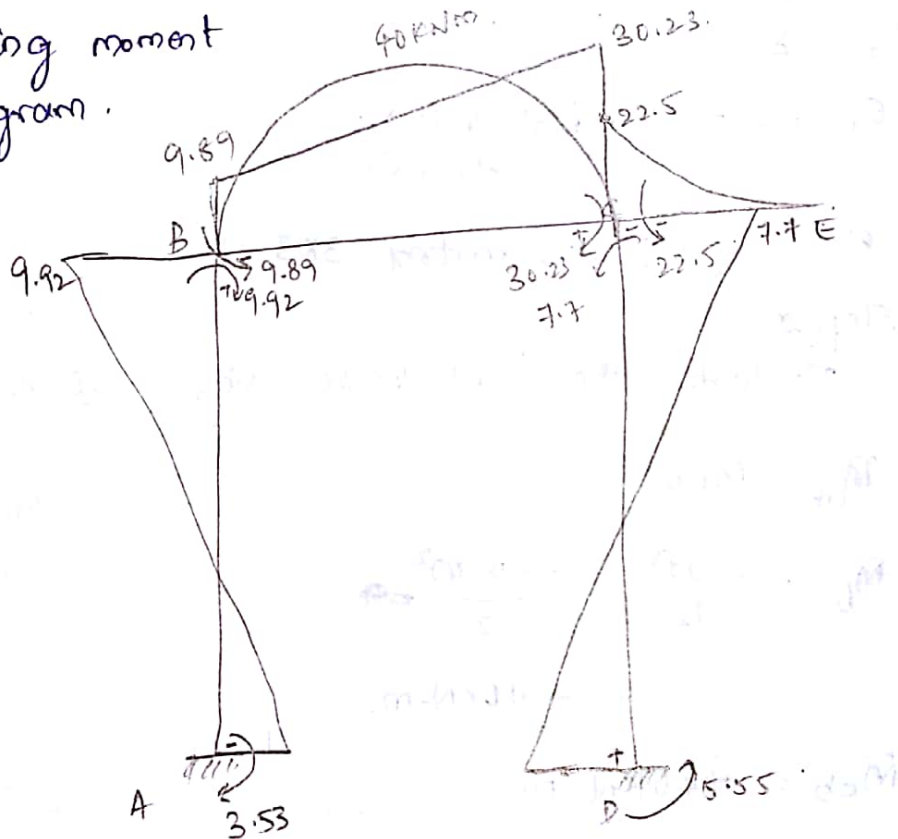 ng moment
gram.
40 KNm.
30.23.
22.5
9.89
B
9.92
9.89
9.92
30.23
7.7
22.5
7.7 E
A
3.53
D
5.55